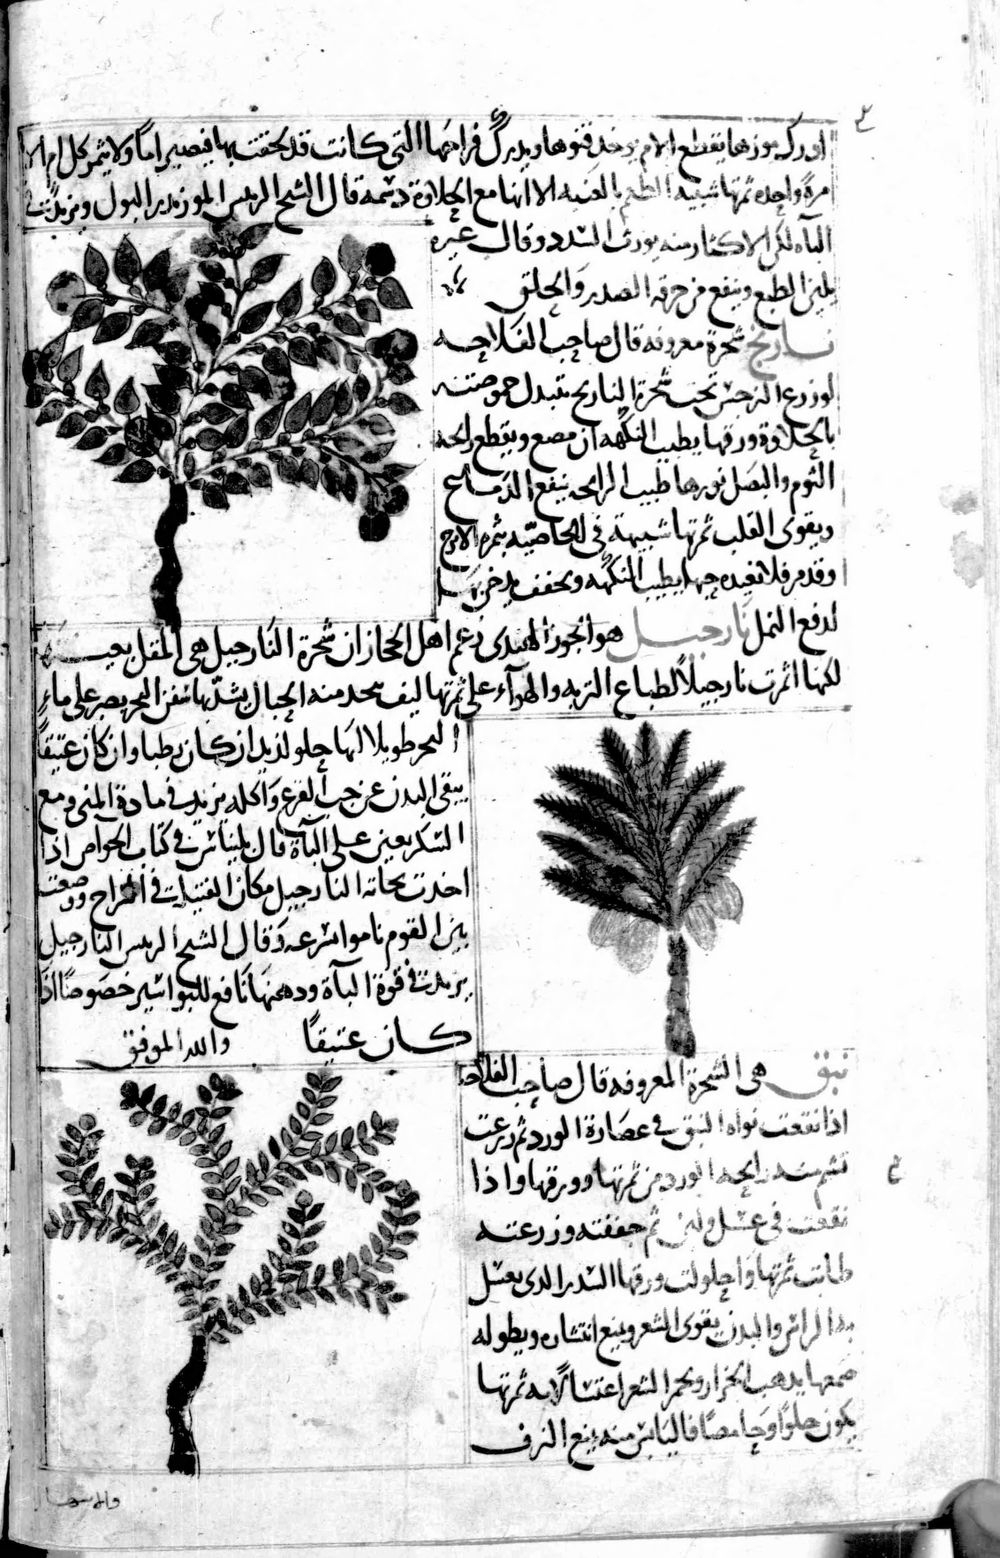 ادركه موزها يقطع الام يوخذ قنوها ويترك فراخها التي كانت قد لحقت بها فيصير اما ولا يثمر كل ام الا
مرة واحدة ثمرتها شبيه الطعم بالعنبه الا انها مع الحلاوة دسمه قال الشيخ الرييس الموز يدر البول ويزيد في
الباه لكن الاكثار منه يورث السدد وقال غيره
يلين الطبع وينفع من حرقة الصدر والحلق
نارنج شجرة معروفه قال صاحب الفلاحه
لو زرع النرجس تحت شجرة النارنج تبدل حموضته
بالحلاوة ورقها يطيب النكهه ان مضغ ويقطع رايحه
الثوم والبصل نورها طيب الرايحه ينفع الدماغ
ويقوى القلب ثمرتها شبيهة في الخاصيه بثمرة الاترج
وقد مر فلا نعيده حبها يطيب النكهه ويجفف يدخن بها
لدفع النمل نارجيل هو الجوز الهندى زعم اهل الحجاز ان شجرة النارجيل هى المقل بعينها
لكنها اثمرت نارجيلاً لطباع التربه والهوآء على ثمرتها ليف يتخد منه الحبال يشد بها سفن البحر يصبر على ماء
البحر طويلا لبها حلو لذيذ ان كان رطبا وان كان عتيقا
ينقى البدن عن حب القرع واكله يزيد في مادة المنى ومع
السكر يعين على الباة قال بليناس في كتاب الخواص اذا
اخذت لحاته النارجيل مكان الفتيلة في السراج ووضعت
بين القوم ناموا بسرعه وقال الشيخ الرييس النارجيل
يزيد في قوة الباة ودهنها نافع للبواسير خصوصًا اذا
كان عتيقًا والله الموفق
نبق هى الشجرة المعروفه قال صاحب الفلاحه
اذا نقعت نواه النبق في عصارة الورد ثم زرعت
تشم منه رايحه الورد من ثمرتها وورقها واذا
نقعت في عسل ولبن ثم جففته وزرعته
طابت ثمرتها واحلولت ورقها السدر الذى يغسل
به الراس والبدن يقوى الشعر ويمنع انتشاره ويطوله
صمغها يذهب الحزاز ويحمر الشعر اغتسالاً به ثمرتها
يكون حلوًا وحامضًا فاليابس منه يمنع النزف